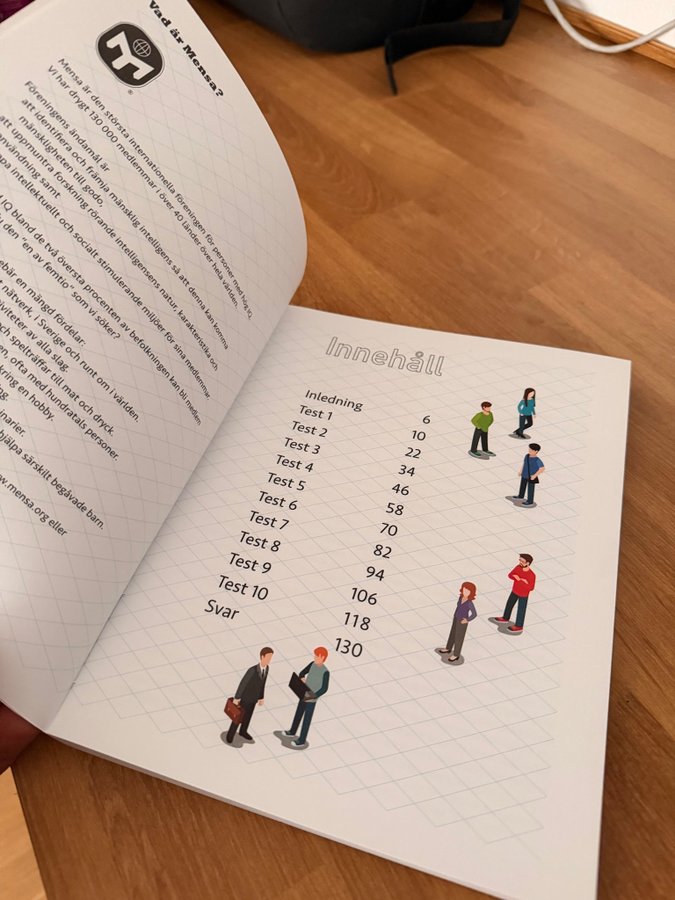 Vad är Mensa?
®
Mensa är den största internationella föreningen för personer med hög IQ.
Vi har drygt 130 000 medlemmar i över 40 länder över hela världen.
Föreningens ändamål är
att identifiera och främja mänsklig intelligens så att denna kan komma
mänskligheten till godo,
att uppmuntra forskning rörande intelligensens natur, karakteristika och
användning samt
intellektuellt och socialt stimulerande miljöer för sina medlemmar.
IQ bland de två översta procenten av befolkningen kan bli medlem.
du den "en av femtio" som vi söker?
en mängd fördelar:
nätverk, i Sverige och runt om i världen.
av alla slag.
och spelträffar till mat och dryck.
ofta med hundratals personer.
kring en hobby.
hjälpa särskilt begåvade barn.
www.mensa.org eller
Innehåll
Inledning 6
Test 1 10
Test 2 22
Test 3 34
Test 4 46
Test 5 58
Test 6 70
Test 7 82
Test 8 94
Test 9 106
Test 10 118
Svar 130